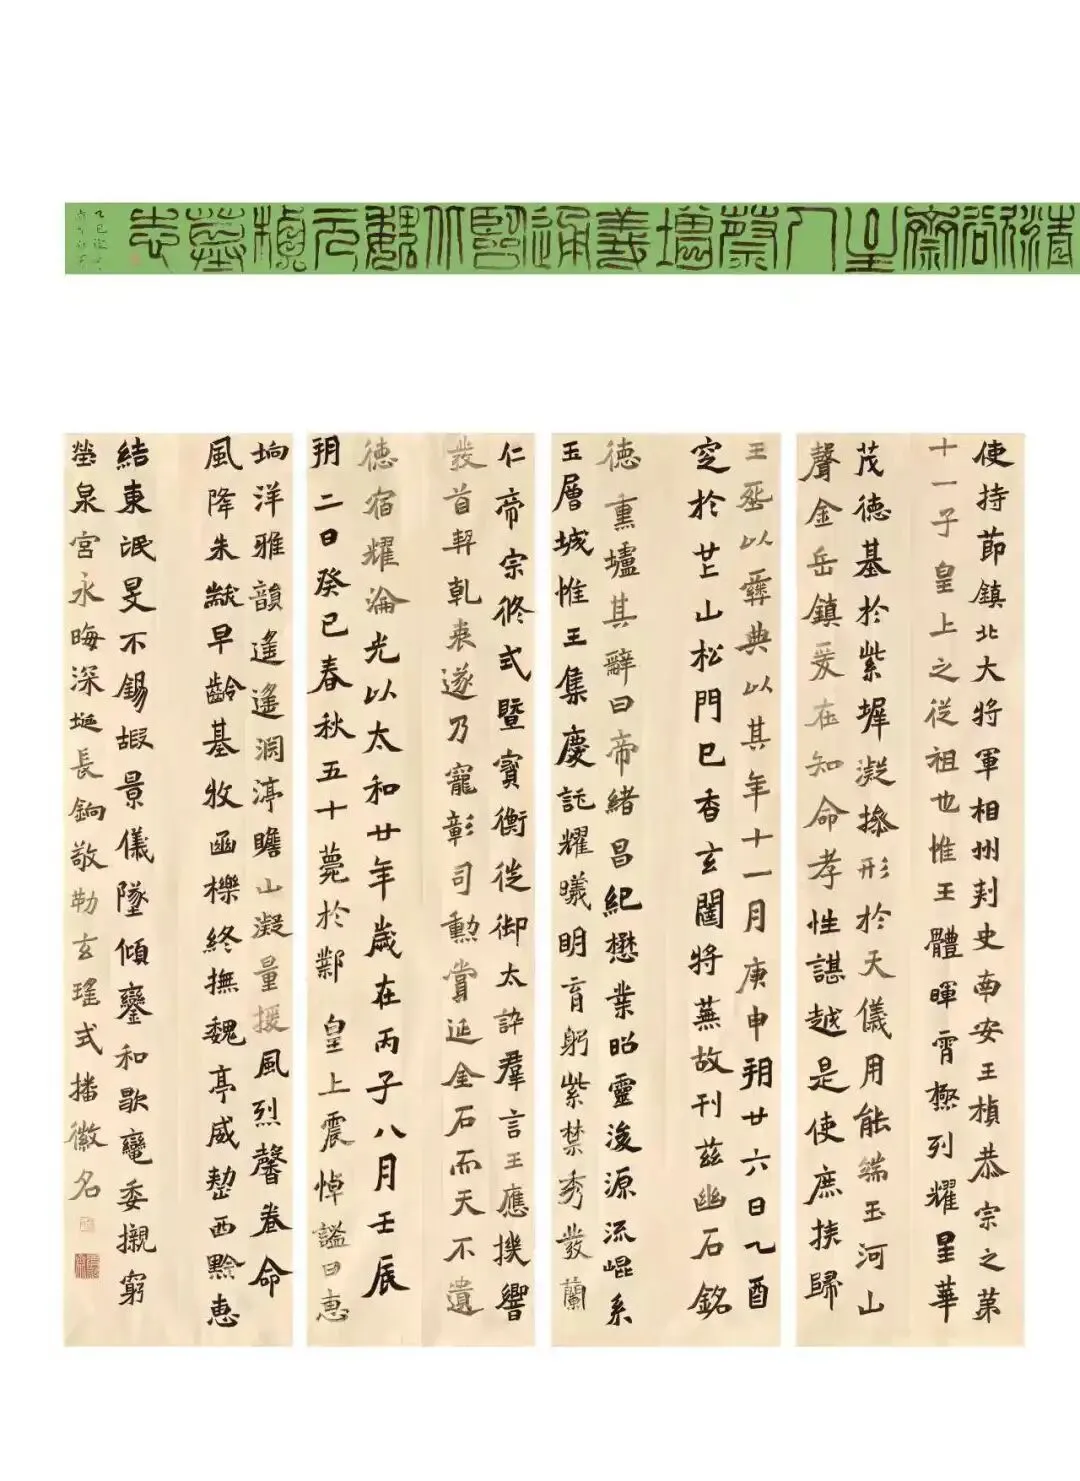 谷齋主人蔡義通臨北魏元楨墓志
使持節鎮北大將軍相州刺史南安王楨恭宗之第
十一子皇上之從祖也惟王體暉霄極列耀星華
茂德基於紫墀凝操形於天儀用能端玉河山
聲金岳鎮爰在知命孝性諶越是使庶族歸
王丕以彝典以其年十一月庚申朔廿六日乙酉
窆於芒山松門已杳玄闥將蕪故刊茲幽石銘
德熏壚其辭曰帝緒昌紀懋業昭靈浚源流崐系
玉層城惟王集慶託耀曦明育躬紫禁秀發蘭
仁帝宗攸式暨寶衡徙御太訞羣言王應機響
發首契乾衷遂乃寵彰司勳賞延金石而天不遺
德宿耀淪光以太和廿年歲在丙子八月壬辰
朔二日癸巳春秋五十薨於鄴 皇上震悼諡曰惠
坰洋雅韻遙遙淵渟瞻山凝量援風烈馨卷命
風降朱黻早齡基牧函櫟終撫魏亭威整西黔惠
結東氓旻不錫嘏景儀墜傾鑾和歇鞶委櫬窮
塋泉宮永晦深埏長銄敬勒玄瑤式播徽名